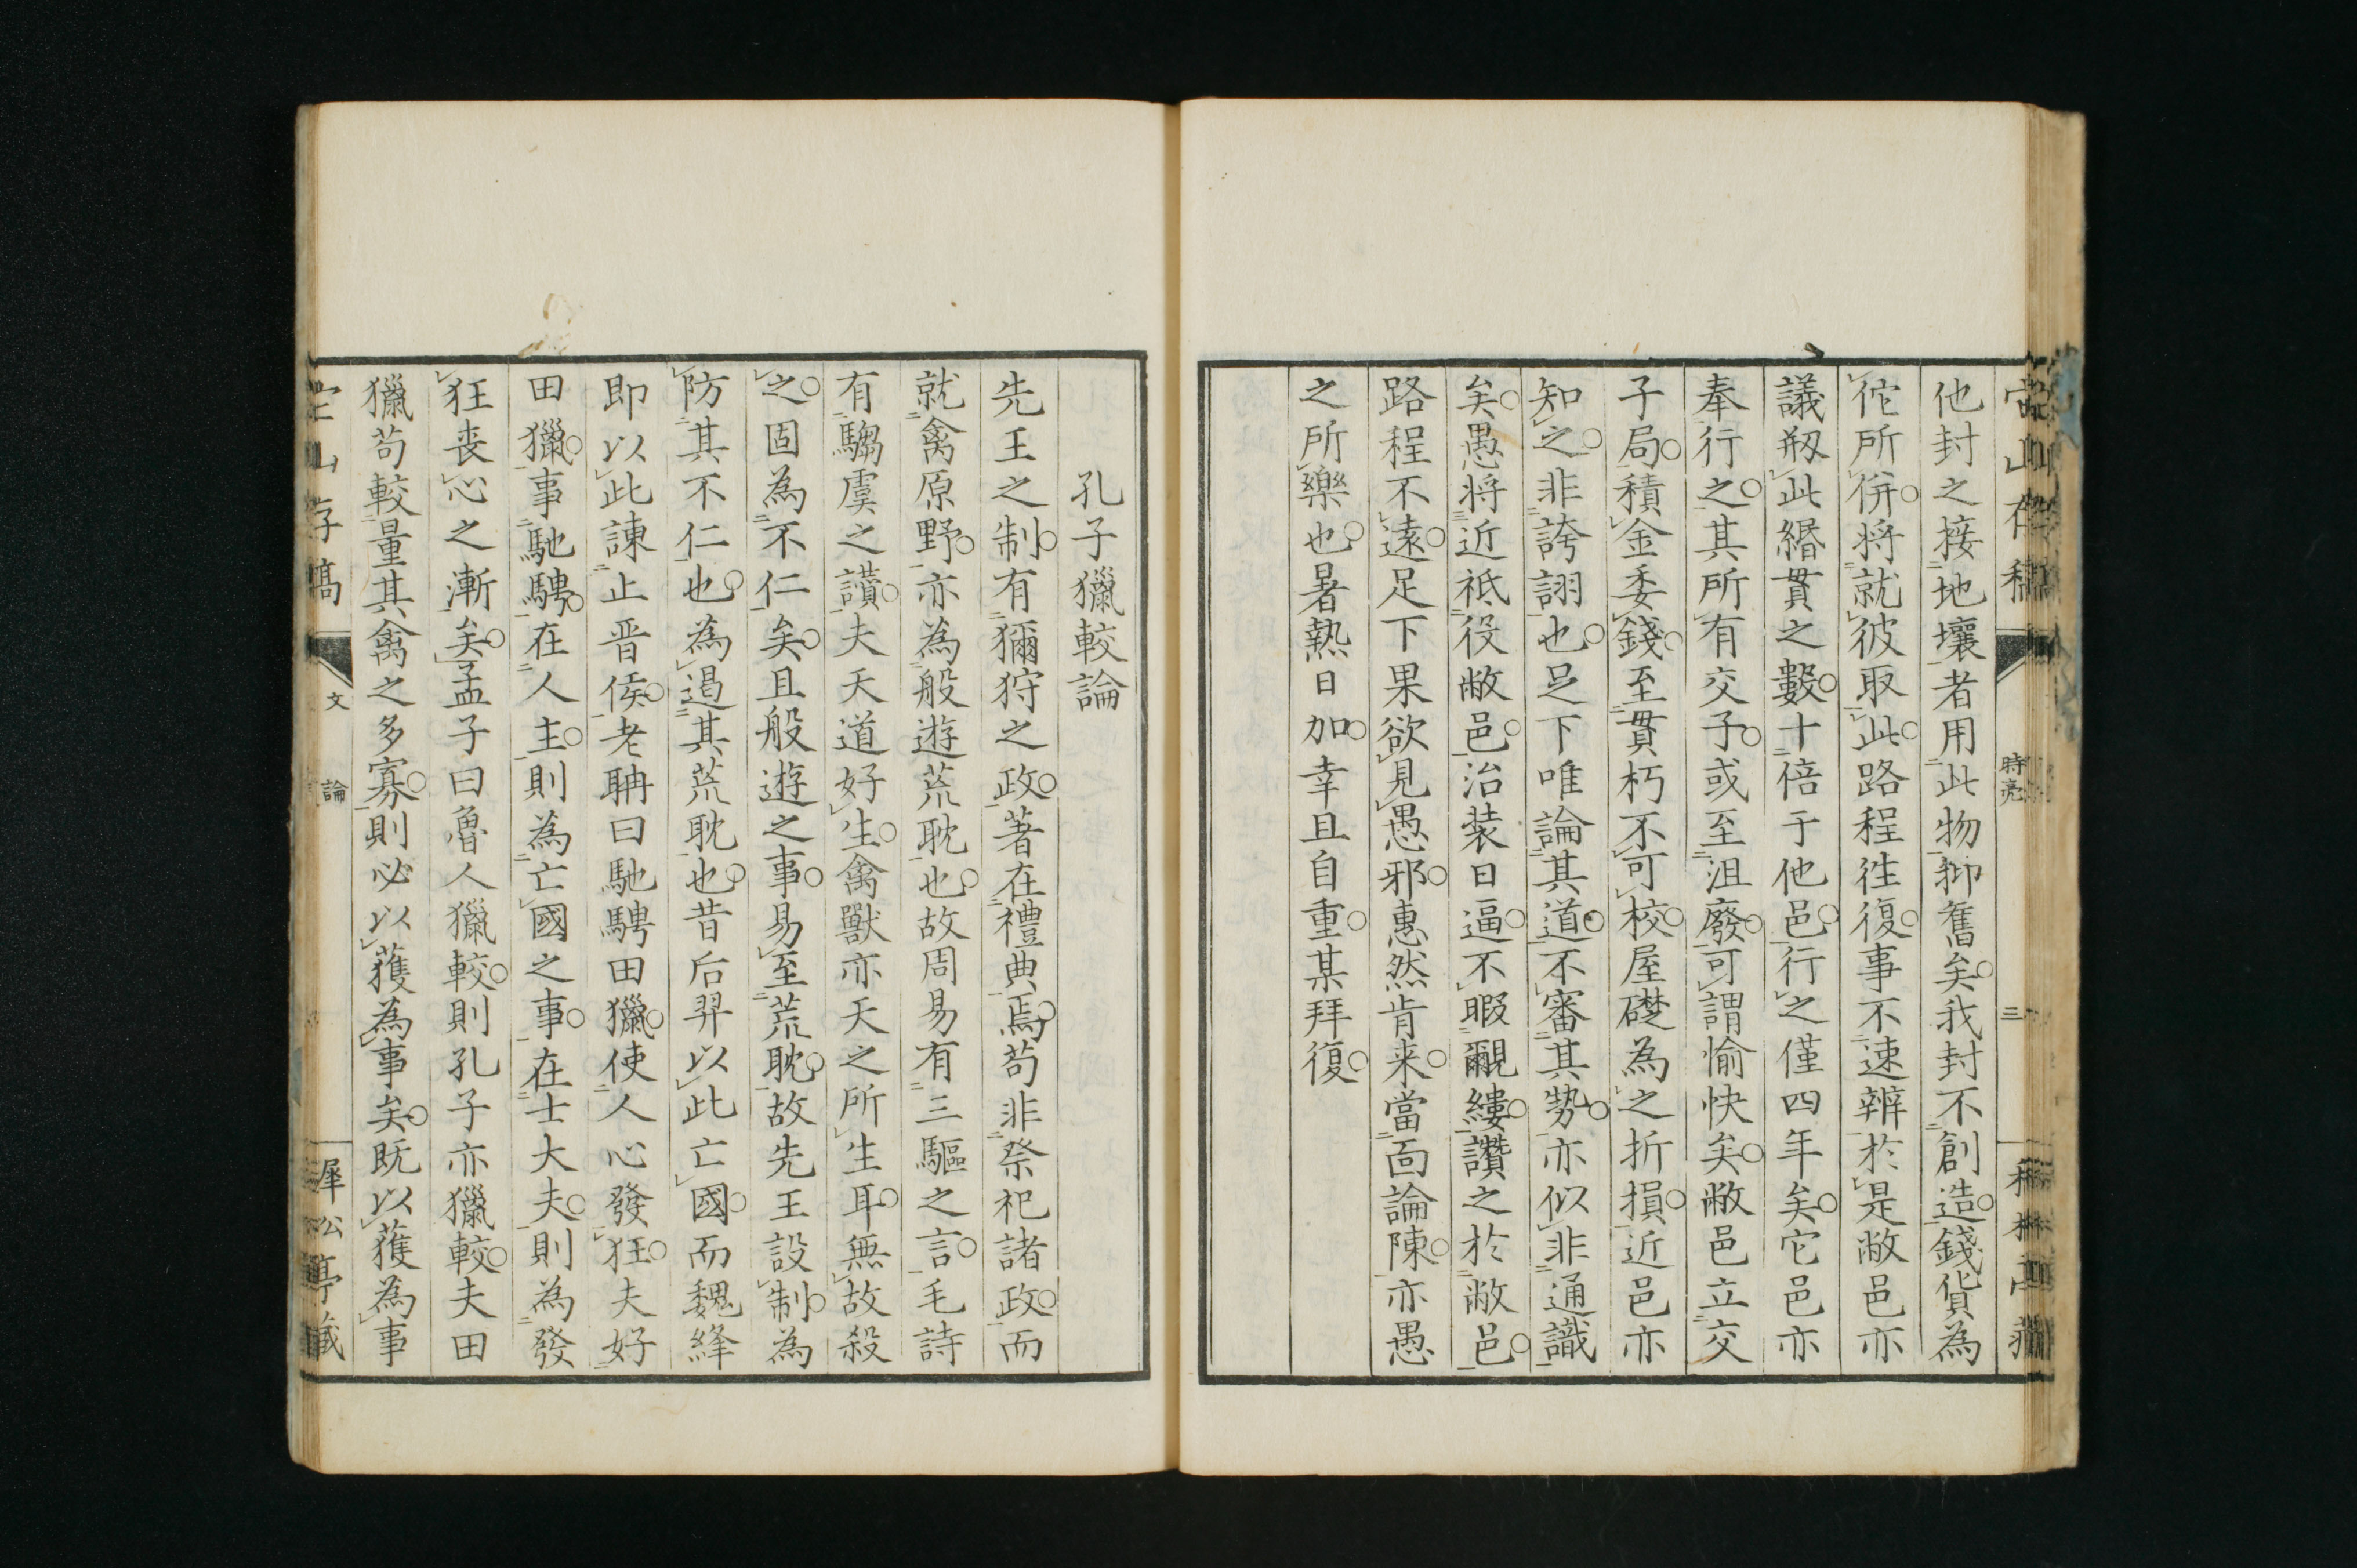 他封之接地壤者用此物抑奮矣我封不創造錢貨為
佗所併將就彼取此路程徃復事不速辦於是敝邑亦
議剏此緡貫之數十倍于他邑行之僅四年矣它邑亦
奉行之其所有交子或至沮廢可謂愉快矣敝邑立交
子局積金委錢至貫朽不可校屋礎為之折損近邑亦
知之非誇詡也足下唯論其道不審其勢亦似非通識
矣愚將近祗役敝邑治裝日逼不暇覼縷讚之於敝邑
路程不遠足下果欲見愚邪惠然肯来當面論陳亦愚
之所樂也暑熱日加幸且自重某拜復
時亮
三
孔子獵較論
先王之制有獮狩之政著在禮典焉苟非祭祀諸政而
就禽原野亦為般遊荒耽也故周易有三驅之言毛詩
有騶虞之讃夫天道好生禽獸亦天之所生耳無故殺
之固為不仁矣且般遊之事易至荒耽故先王設制為
防其不仁也為遏其荒耽也昔后羿以此亡國而魏絳
即以此諌止晋侯老聃曰馳騁田獵使人心發狂夫好
田獵事馳騁在人主則為亡國之事在士大夫則為發
狂丧心之漸矣孟子曰魯人獵較則孔子亦獵較夫田
獵苟較量其禽之多寡則必以獲為事矣既以獲為事
山存稿
文
論
犀松亭藏